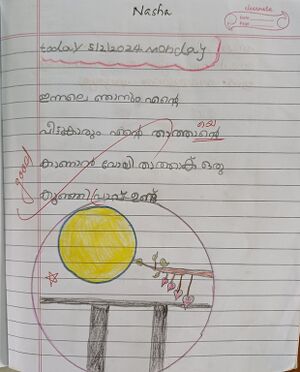 Nasha
classmate
Date
Page
today 5/2/2024 monday
ഇന്നലെ ഞാനും എന്റെ
വീട്ടുകാരും എന്റെ താത്താന്റെ
യെ
കാണാൻ പോയി താത്താക് ഒരു
കുഞ്ഞി വ്രാവ് ഉണ്ട്
good